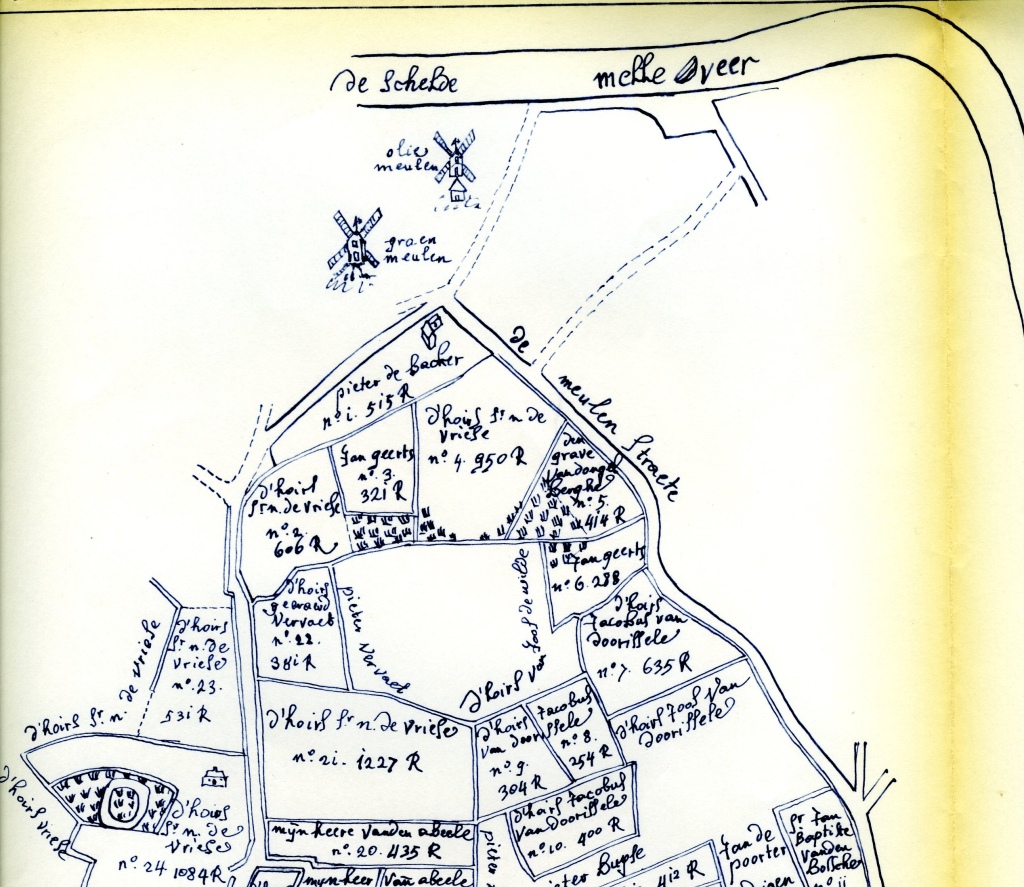 de Schelde
melle veer
olie
meulen
graen
meulen
de
meulen Straete
pieter de backer
n° 1. 515 R
d'hoirs Sr n. de
vriese
n° 4. 950 R
Jan geerts
n° 3.
321 R
den
grave
Berghe
n° 5.
414 R
d'hoirs
Sr n. de vriese
n° 2.
606 R
Jan geerts
n° 6. 288
d'hoirs
geeraerd
vervaet
n° 22.
381 R
pieter vervaet
d'hoirs van Joos de wilde
d'hoirs
Jacobus van
doorissele
n° 7. 635 R
de vriese
d'hoirs Sr n
d'hoirs
Sr n. de
vriese
n° 23.
531 R
d'hoirs Sr n. de vriese
n° 21. 1227 R
d'hoirs
van doorissele
n° 9.
304 R
Jacobus
n° 8.
254 R
d'hoirs Joos van
doorissele
d'hoirs vriese
d'hoirs
Sr n. de
vriese
n° 24 1084 R
mijn heere vanden abeele
n° 20. 435 R
d'hoirs Jacobus
van doorissele
n° 10. 400 R
pieter
mijn heer van abeele
pieter Buyse
412 R
Jan de
poorter
Sr Jan
Baptiste
vanden
Bossche
n° 11